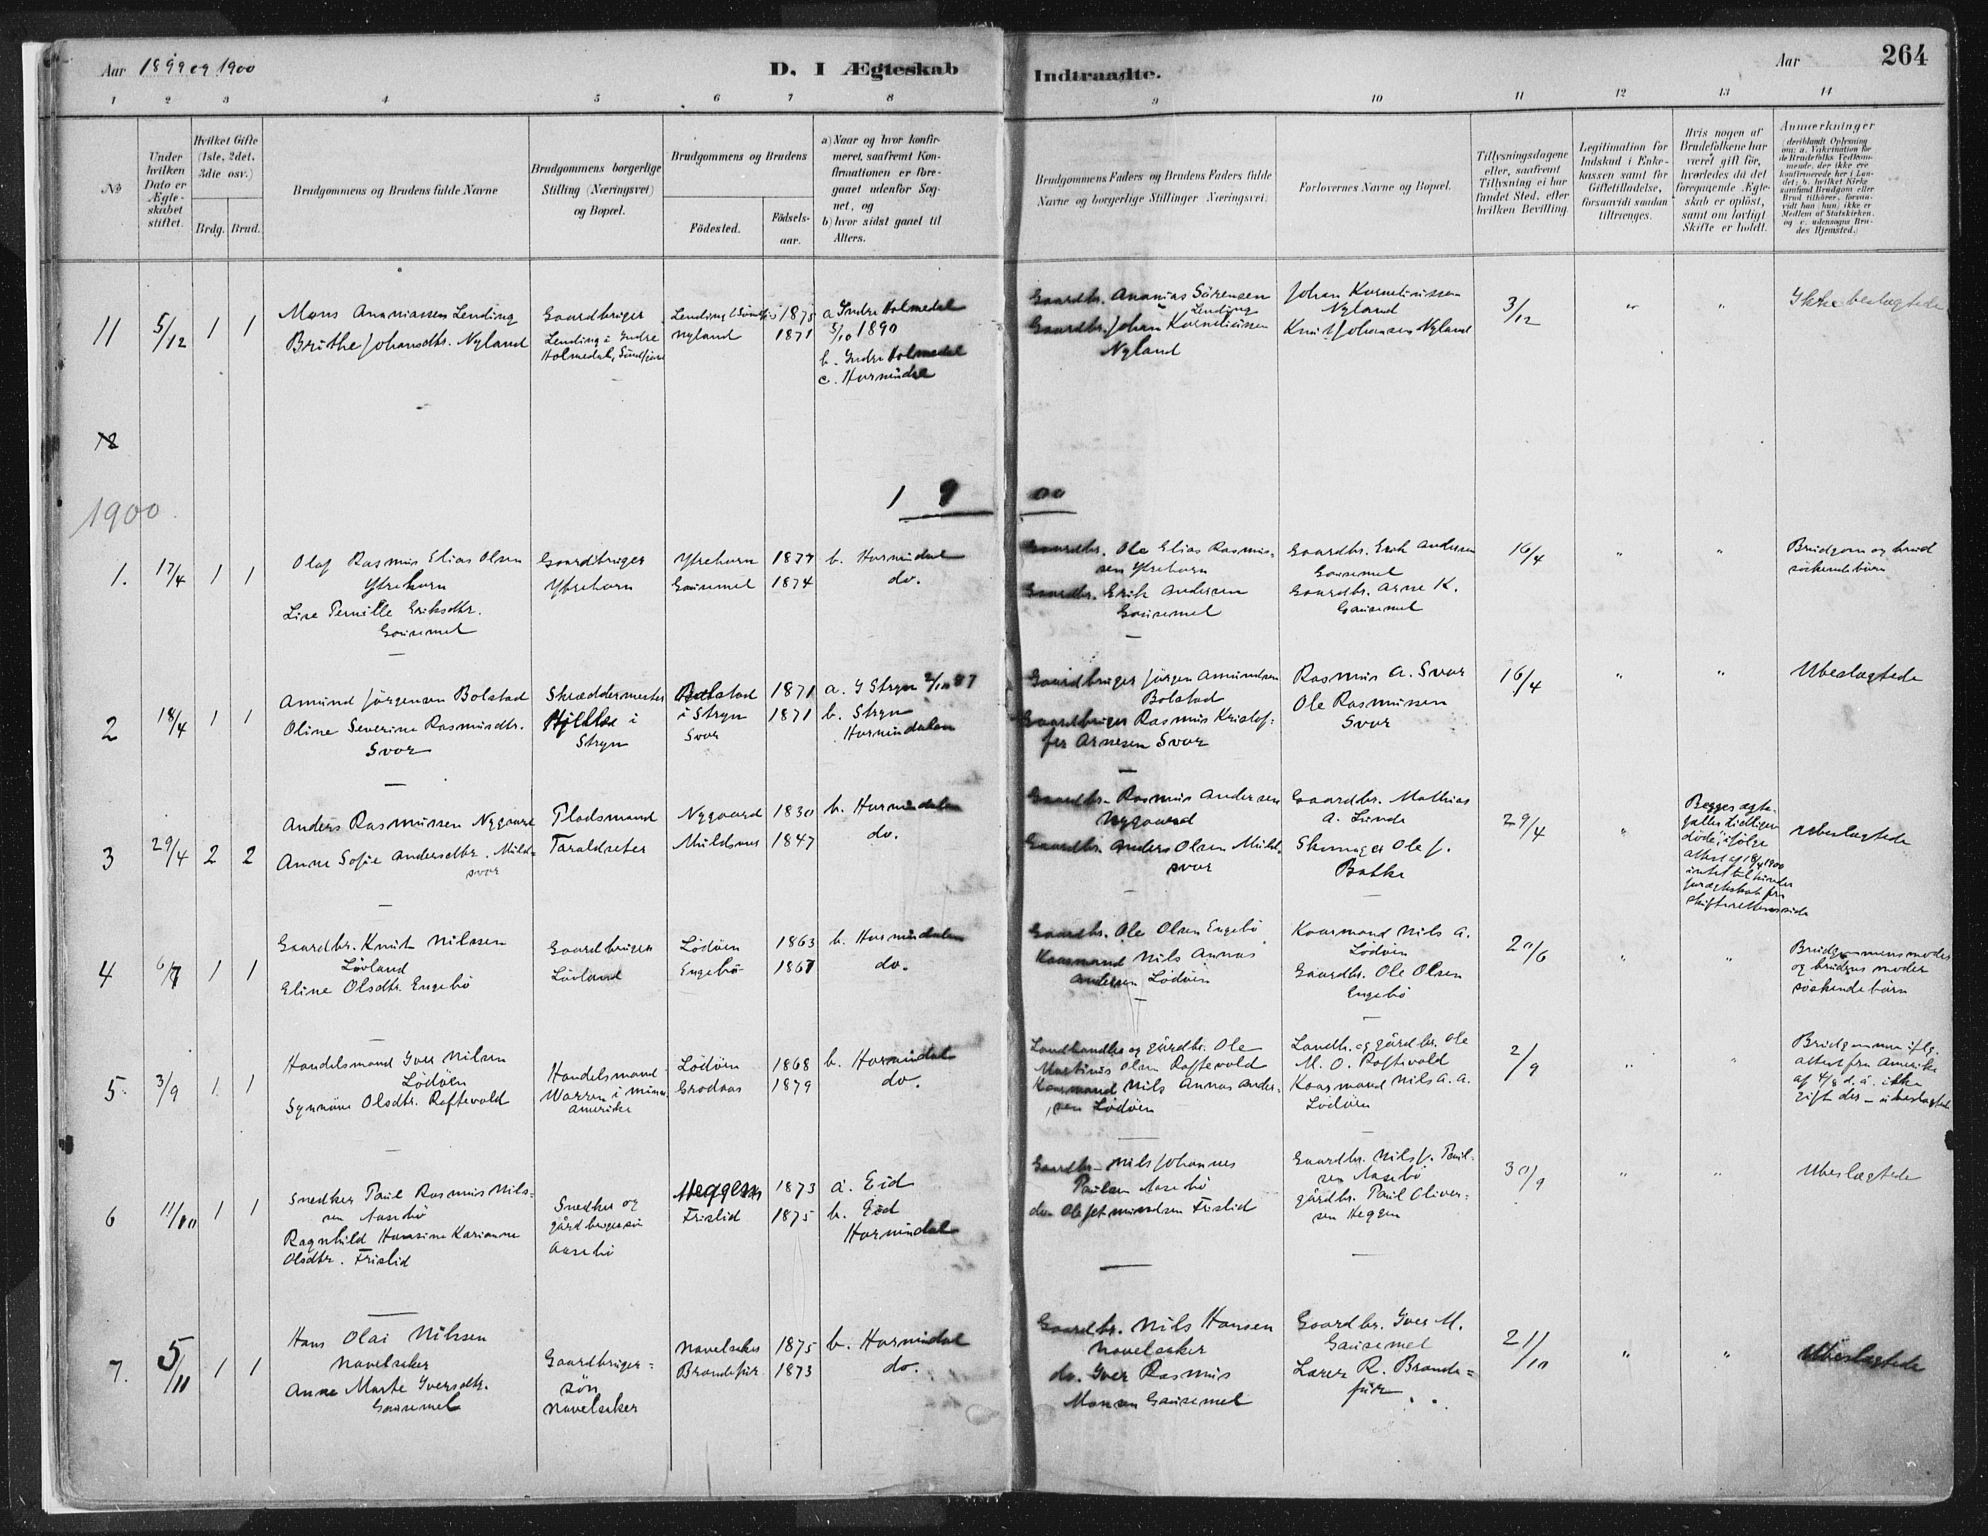 Aar 1899 og 1900
D. I Ægteskab Indtraadte.
Aar
264
1 2 3 4 5 6 7 8 9 10 11 12 13 14
№
Under hvilken Dato er Ægteskabet stiftet.
Hvilket Gifte (1ste, 2det, 3die osv.)
Brdg. Brud.
Brudgommens og Brudens fulde Navne
Brudgommens borgerlige Stilling (Næringsvei) og Bopæl.
Brudgommens og Brudens
Fødested.
Fødselsaar.
a) Naar og hvor konfirmeret, saafremt Konfirmationen er foregaaet udenfor Sognet, og
b) hvor sidst gaaet til Alters.
Brudgommens Faders og Brudens Faders fulde Navne og borgerlige Stillinger Næringsvei.
Forlovernes Navne og Bopæl.
Tillysningsdagene eller, saafremt Tillysning ei har fundet Sted, efter hvilken Bevilling
Legitimation for Indskud i Enkekassen samt for Giftetilladelse, forsaavidt saadan tiltrænges.
Hvis nogen af Brudefolkene har været gift før, hvorledes da det foregaaende Ægteskab er opløst, samt om lovligt Skifte er holdt.
Anmerkninger
(deriblandt Oplysning om: a. Vakcination for de Brudefolks Vedkommende, der ikke ere konfirmerede her i Landet; b. hvilket Kirkesamfund Brudgom eller Brud tilhører, forsaavidt han, hun, ikke er Medlem af Statskirken, og c. udensogns Brudes Hjemsted.)
11 5/12 1 1
Mons Ananiassen Lending
Brithe Johansdtr. Nyland
Gaardbruger
Lending i Indre
Holmedal, Søndfjord
Lending i Søndfj 1875
Nyland 1871
a Indre Holmedal
5/10 1890
b. Indre Holmedal
c. Hornindal
Gaardbr. Ananias Sørensen
Lending
Gaardbr. Johan Korneliussen
Nyland
Johan Korneliussen
Nyland
Knut Johansen Nyland
3/12 " "
Ikke beslægtede
12
1900
1900
1. 17/4 1 1
Olaf Rasmus Elias Olsen
Ytrehorn
Lise Pernille Eriksdtr.
Gausemel
Gaardbruger
Ytrehorn
Ytrehorn 1877
Gausemel 1874
b. Hornindal
do.
Gaardbr. Ole Elias Rasmussen Ytrehorn
Gaardbr. Erik Andersen
Gausemel
Gaardbr. Erik Andersen
Gausemel
Gaardbr. Arne K.
Gausemel
16/4 " "
Brudgom og brud
søskendebørn
2 18/4 1 1
Amund Jørgensen Bolstad
Oline Severine Rasmusdtr.
Svor
Skræddermester
Hjelle i
Stryn
Bolstad 1871
i Stryn 1871
Svor
a. I Stryn 2/10 87
b. Stryn
Hornindalen
Gaardbruger Jørgen Amundsen
Bolstad
Gaardbruger Rasmus Kristoffer Arnesen Svor
Rasmus A. Svor
Ole Rasmussen
Svor
16/4 " "
Ubeslægtede
3 29/4 2 2
Anders Rasmussen Nygaard
Anne Sofie Andersdtr. Muldsvor
Pladsmand
Taraldseter
Nygaard 1830
Muldsvor 1847
b. Hornindalen
do.
Gaardbr. Rasmus Andersen
Nygaard
Gaardbr. Anders Olsen Muldsvor
Gaardbr. Mathias
A. Lunde
Ole J.
Bakke
29/4 "
Begges ægtefæller tidligere
døde; ifølge
attest af 18/4 1900
intet til hinder
for ægteskab fra
skifterettens side
Ubeslægtede
4 6/7 1 1
Gaardbr. Knut Nilssen
Løvland
Eline Olsdtr. Engebø
Gaardbruger
Løvland
Lødøen 1863
Engebø 1867
b. Hornindalen
do.
Gaardbr. Ole Olsen Engebø
Kaarmand Nils Annas
Andersen Lødøen
Kaarmand Nils A.
Lødøen
Gaardbr. Ole Olsen
Engebø
20/6 " "
Brudgommens moder
og brudens moder
søskendebørn
5. 3/9 1 1
Handelsmand Iver Nilsen
Lødøen
Synnøve Olsdtr. Raftevold
Handelsmand
Warren i Minn.
Amerika
Lødøen 1868
Grodaas 1879
b. Hornindal
do.
Landhandler og gårdbr. Ole
Martinus Olsen Raftevold
Kaarmand Nils Annas Andersen Lødøen
Landh. og gårdbr. Ole
M. O. Raftevold
Kaarmand Nils A. A.
Lødøen
2/9 " "
Brudgommen iflg.
attest fra Amerika
af 4/8 d. å. ikke
gift der – ubeslægtede
6 11/10 1 1
Snedker Paul Rasmus Nilssen Aasebø
Ragnhild Hansine Karianne
Olsdtr. Frislid
Snedker og
gårdbrugersøn
Aasebø
Heggen 1873
Frislid 1875
a. Eid
b. Eid
Hornindal
Gaardbr. Nils Johannes
Paulsen Aasebø
do. Ole Jetmundsen Frislid
Gaardbr. Nils J. Paulsen Aasebø
gårdbr. Paul Oliversen Heggen
30/9 " "
Ubeslægtede
7. 5/11 1 1
Hans Olai Nilssen
Navelsaker
Anne Marte Iversdtr.
Gausemel
Gaardbrugersøn
Navelsaker
Navelsaker 1875
Brandefur 1873
b. Hornindal
do.
Gaardbr. Nils Hansen
Navelsaker
do. Iver Rasmus
Monsen Gausemel
Gaardbr. Iver M.
Gausemel
Lærer R. Brandefur
21/10 " "
Ubeslægtede